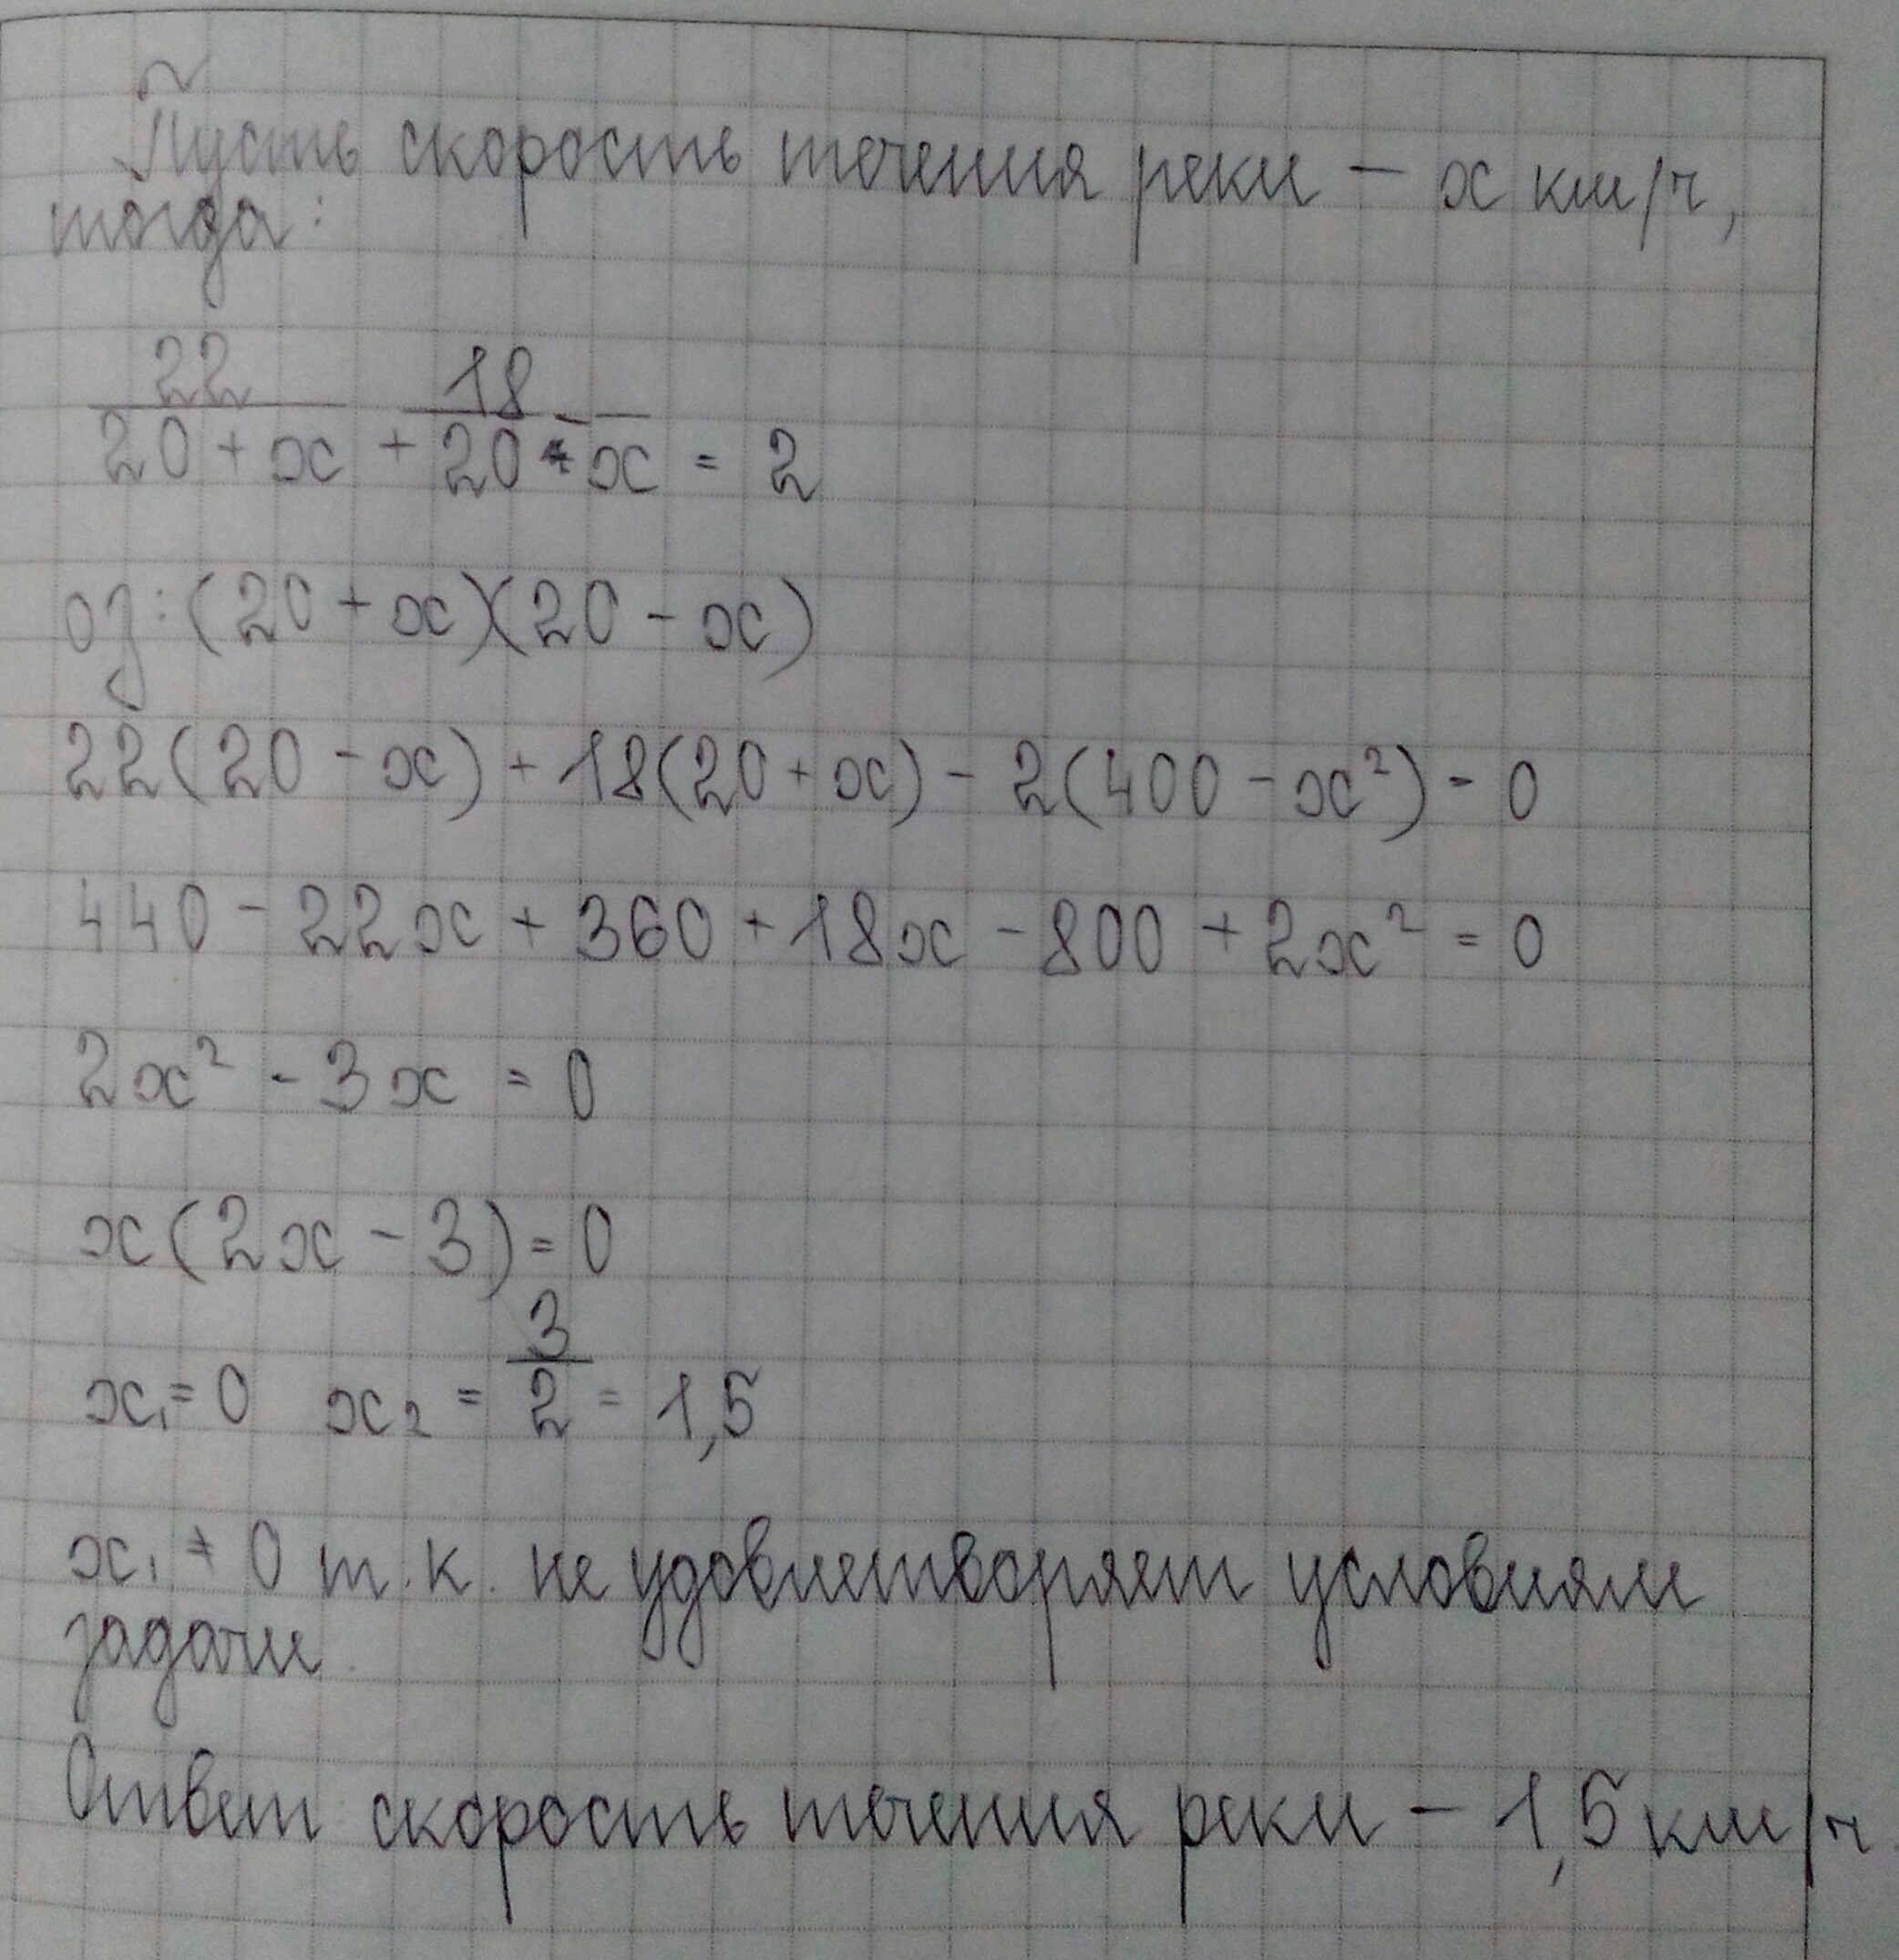 Пусть скорость течения реки – x км/ч,
тогда:
22/(20 + x) + 18/(20 - x) = 2
оз: (20 + x)(20 - x)
22(20 - x) + 18(20 + x) - 2(400 - x²) = 0
440 - 22x + 360 + 18x - 800 + 2x² = 0
2x² - 3x = 0
x(2x - 3) = 0
x₁ = 0 x₂ = 3/2 = 1,5
x₁ ≠ 0 т.к. не удовлетворяет условиям
задачи
Ответ скорость течения реки – 1,5 км/ч